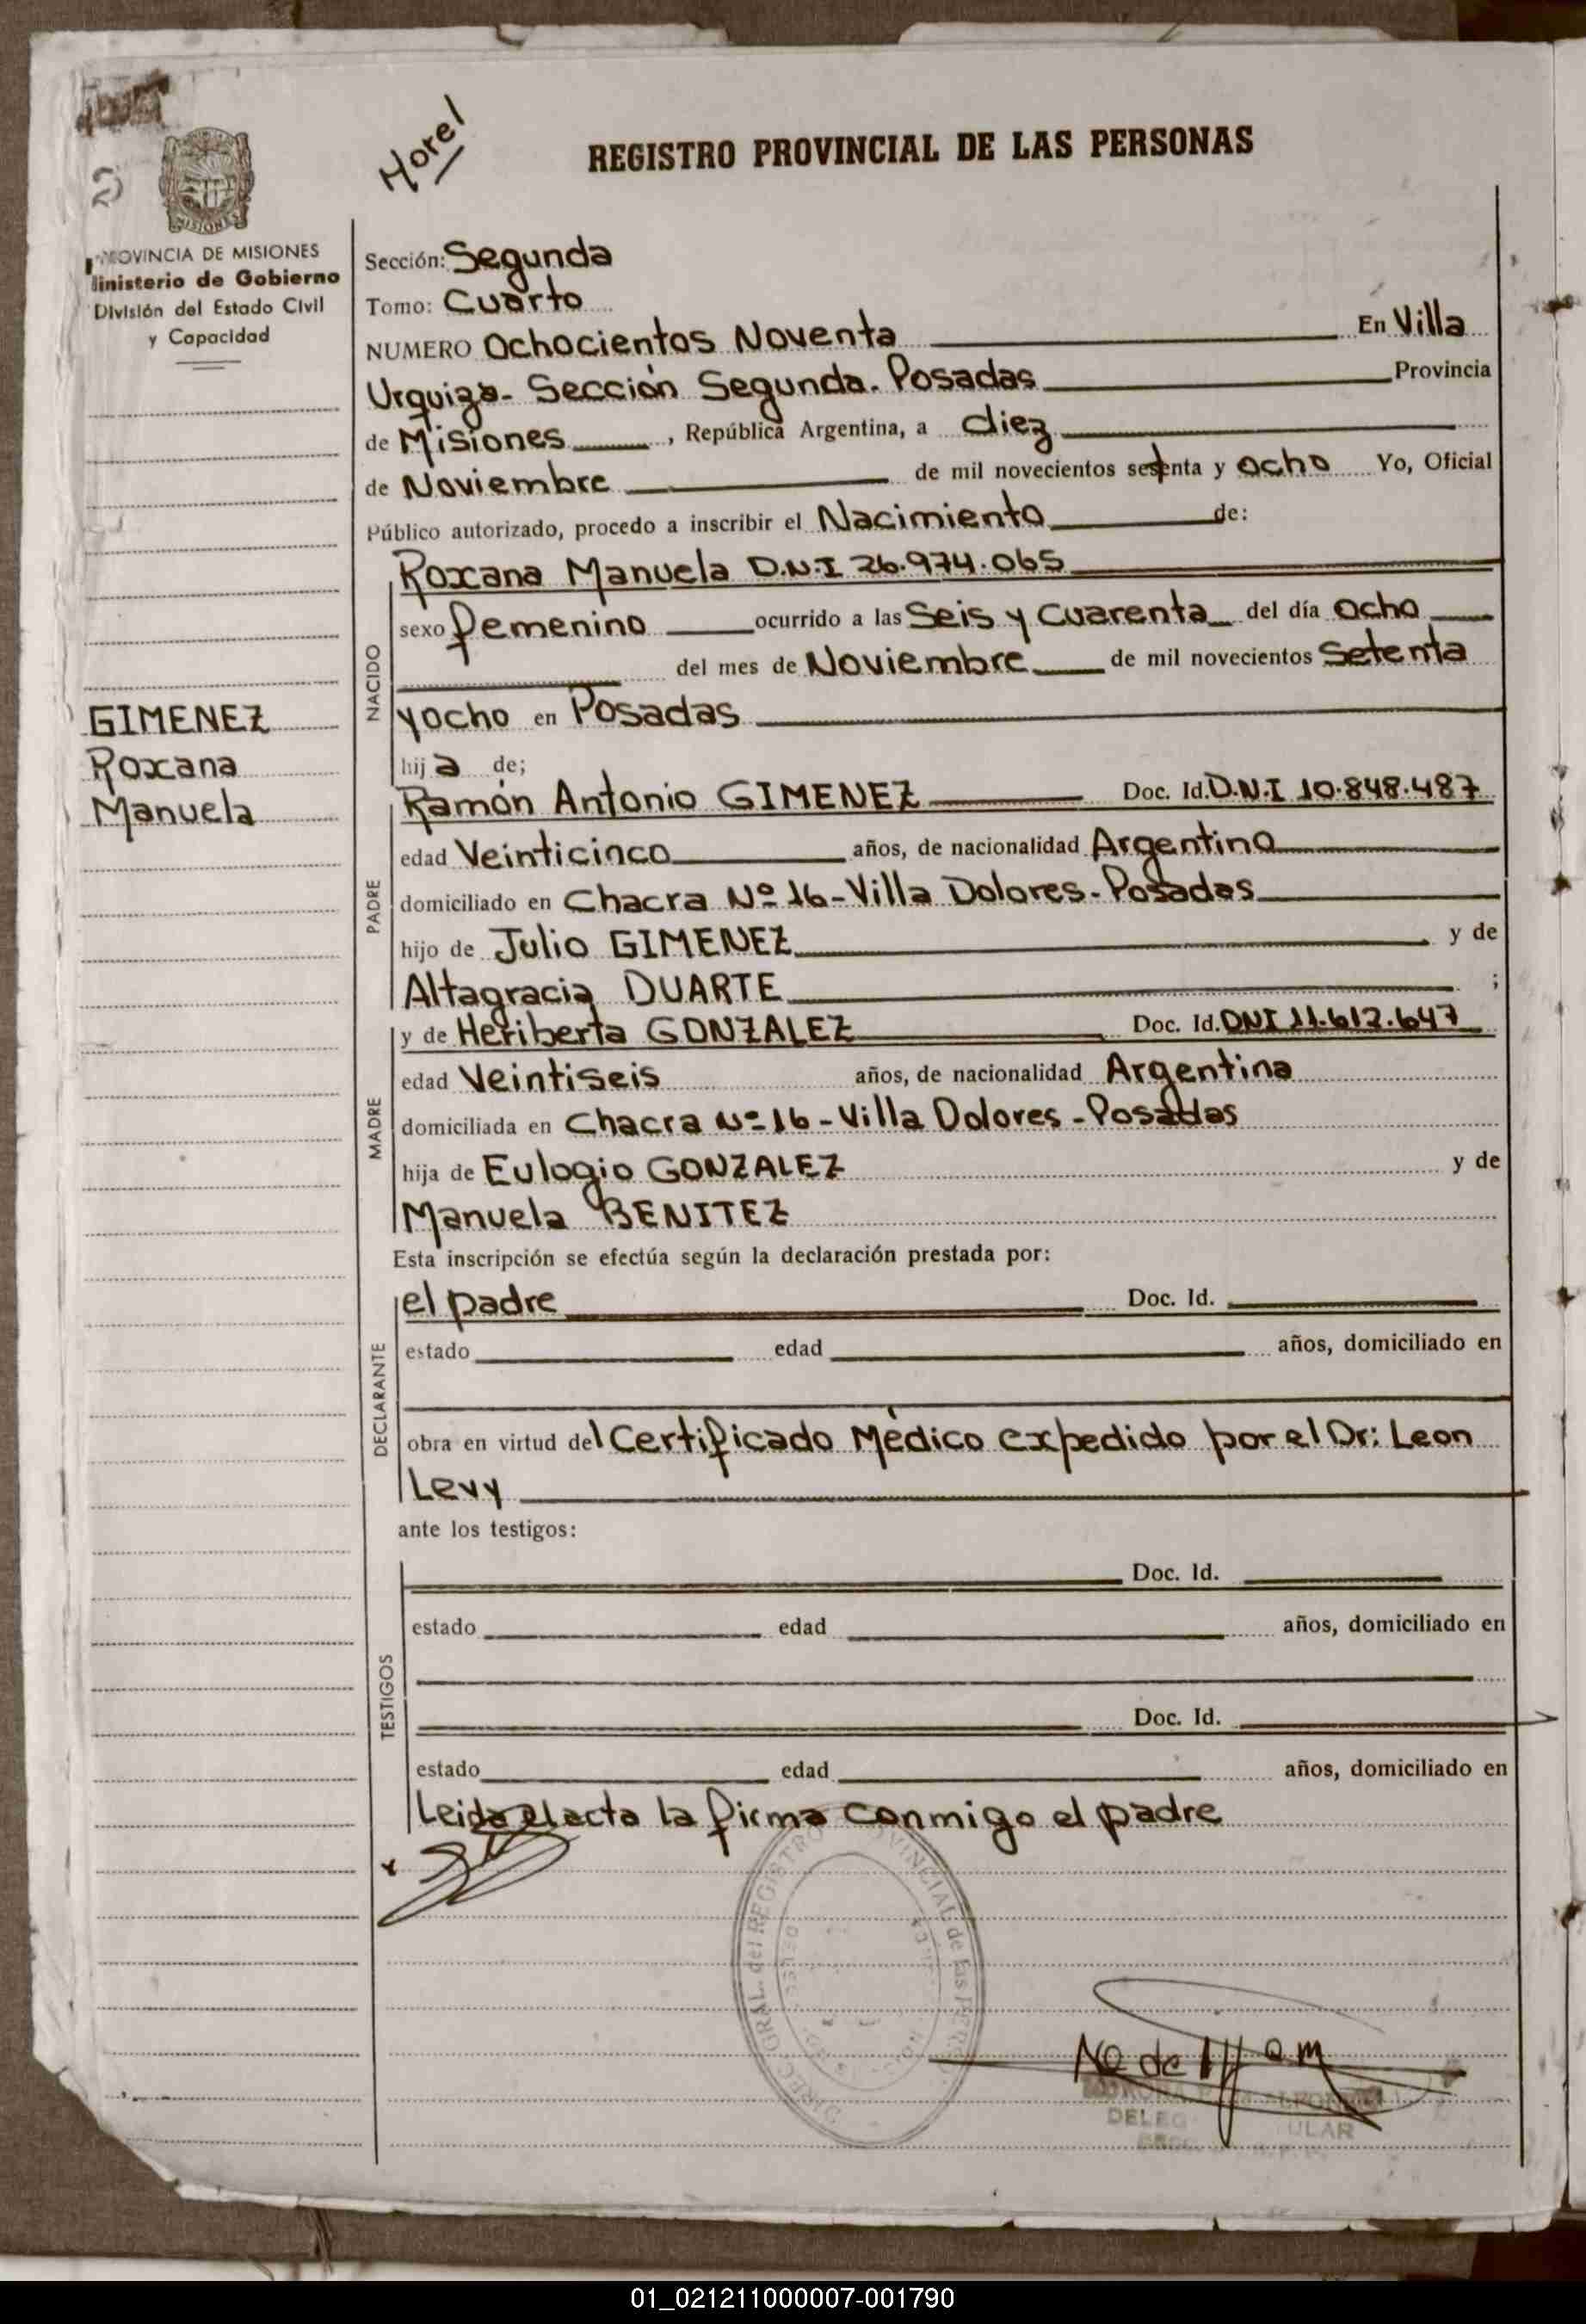 Horel
REGISTRO PROVINCIAL DE LAS PERSONAS
2
MISIONES
PROVINCIA DE MISIONES
Ministerio de Gobierno
División del Estado Civil
y Capacidad
GIMENEZ
Roxana
Manuela
Sección: Segunda
Tomo: Cuarto
NUMERO Ochocientos Noventa En Villa
Urquiza- Sección Segunda. Posadas Provincia
de Misiones, República Argentina, a diez
de Noviembre de mil novecientos setenta y ocho Yo, Oficial
Público autorizado, procedo a inscribir el Nacimiento de:
NACIDO
Roxana Manuela D.N.I 26.974.065
sexo femenino ocurrido a las Seis y Cuarenta del día Ocho
del mes de Noviembre de mil novecientos Setenta
yocho en Posadas
hija de;
PADRE
Ramón Antonio GIMENEZ Doc. Id. D.N.I 10.848.487
edad Veinticinco años, de nacionalidad Argentina
domiciliado en Chacra Nº 16-Villa Dolores-Posadas
hijo de Julio GIMENEZ y de
Altagracia DUARTE ;
MADRE
y de Heriberta GONZALEZ Doc. Id. DNI 11.612.647
edad Veintiseis años, de nacionalidad Argentina
domiciliada en Chacra Nº 16-Villa Dolores-Posadas
hija de Eulogio GONZALEZ y de
Manuela BENITEZ
Esta inscripción se efectúa según la declaración prestada por:
DECLARANTE
el padre Doc. Id.
estado edad años, domiciliado en
obra en virtud del Certificado Médico expedido por el Dr: Leon
Levy
ante los testigos:
TESTIGOS
Doc. Id.
estado edad años, domiciliado en
Doc. Id.
estado edad años, domiciliado en
Leida el acta la firma conmigo el padre
x
DIREC. GRAL. del REGISTRO PROVINCIAL de las
DELEG ULAR
01_021211000007-001790